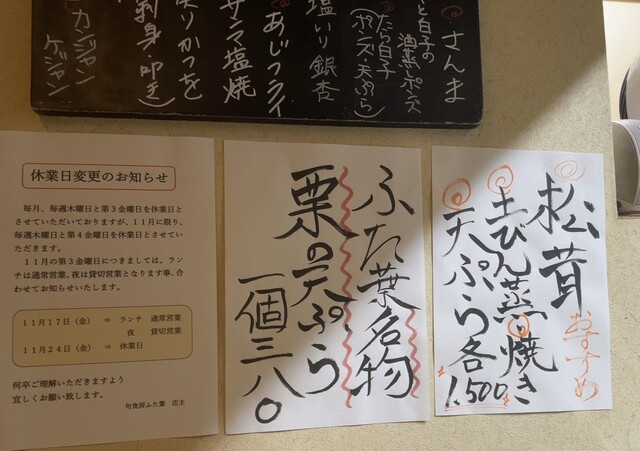 さんま
と白子の
酒蒸・ポンズ
たら白子
(ポンズ・天ぷら)
塩いり銀杏
あじフライ
サンマ塩焼
戻りかつを
刺身・叩き)
カンジャン
ケジャン
休業日変更のお知らせ
毎月、毎週木曜日と第3金曜日を休業日と
させていただいておりますが、11月に限り、
毎週木曜日と第4金曜日を休業日とさせてい
ただきます。
11月の第3金曜日につきましては、ラン
チは通常営業、夜は貸切営業となります事、合
わせてお知らせいたします。
11月17日(金) ⇒ ランチ 通常営業
夜 貸切営業
11月24日(金) ⇒ 休業日
何卒ご理解いただきますよう
宜しくお願い致します。
旬食房ふた葉 店主
ふた葉名物
栗の天ぷら
一個三八〇
松茸
おすすめ
土びん蒸・焼き
天ぷら各
1,500